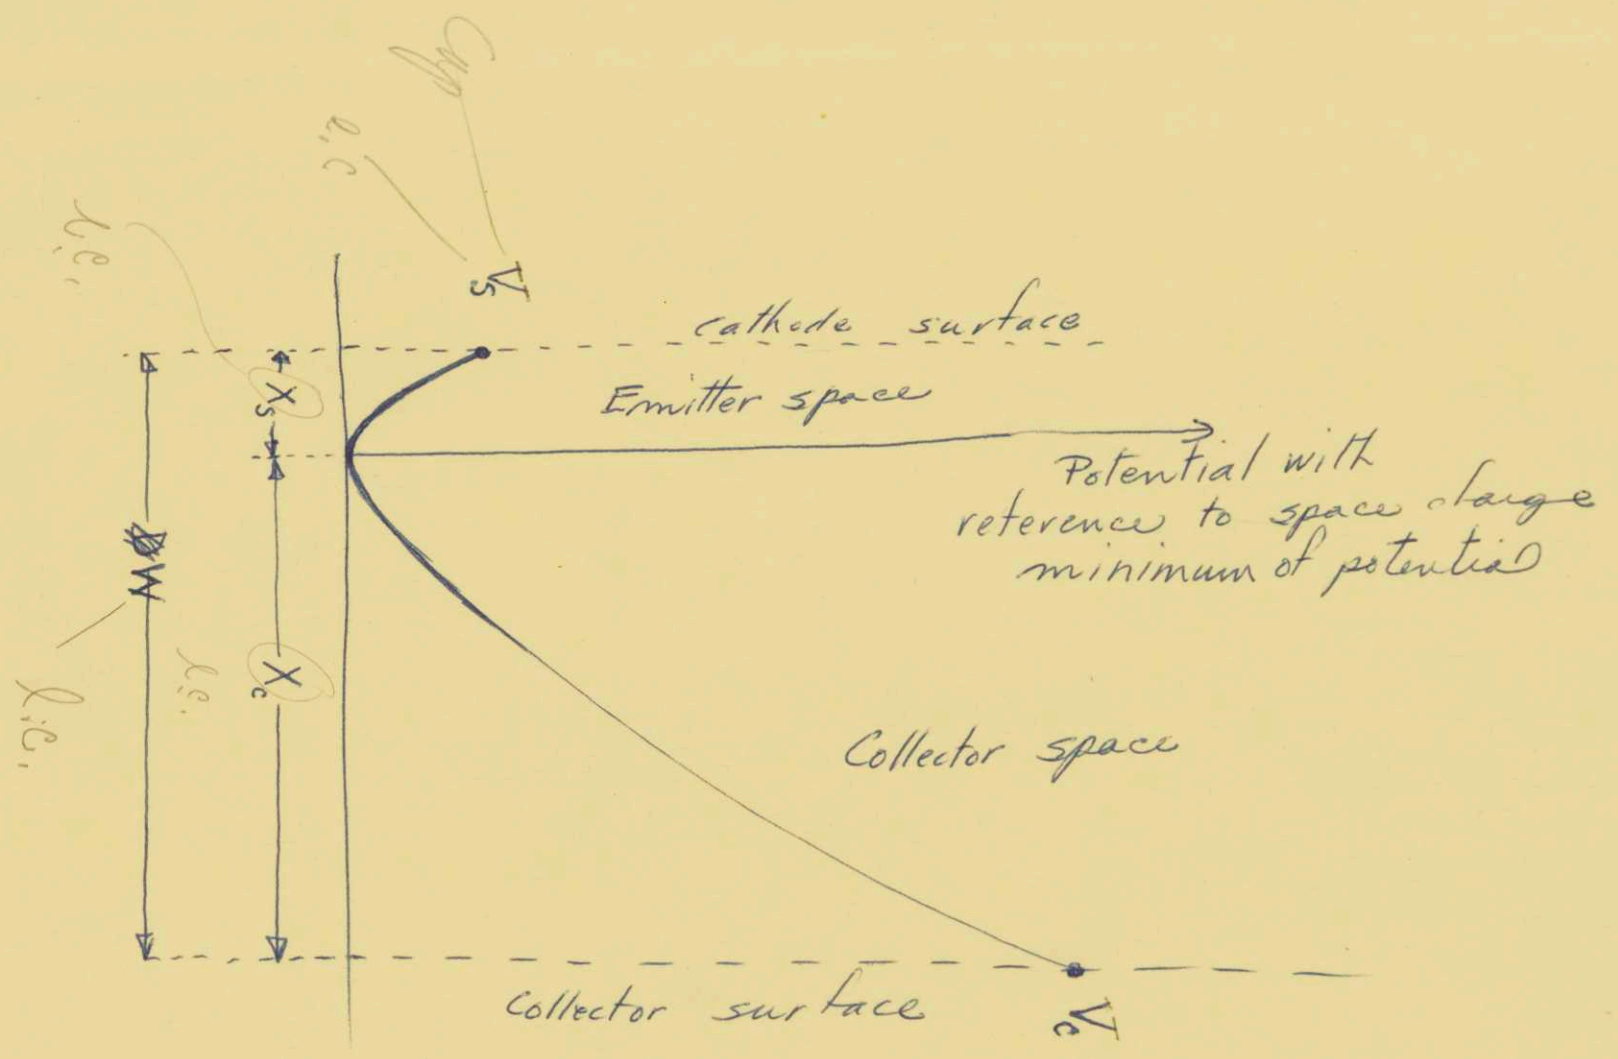 Cap
l.c.
l.c.
Vs
cathode surface
Xs
Emitter space
Potential with
reference to space charge
minimum of potential
W
l.c.
Xc
l.c.
Collector space
Collector surface
Vc